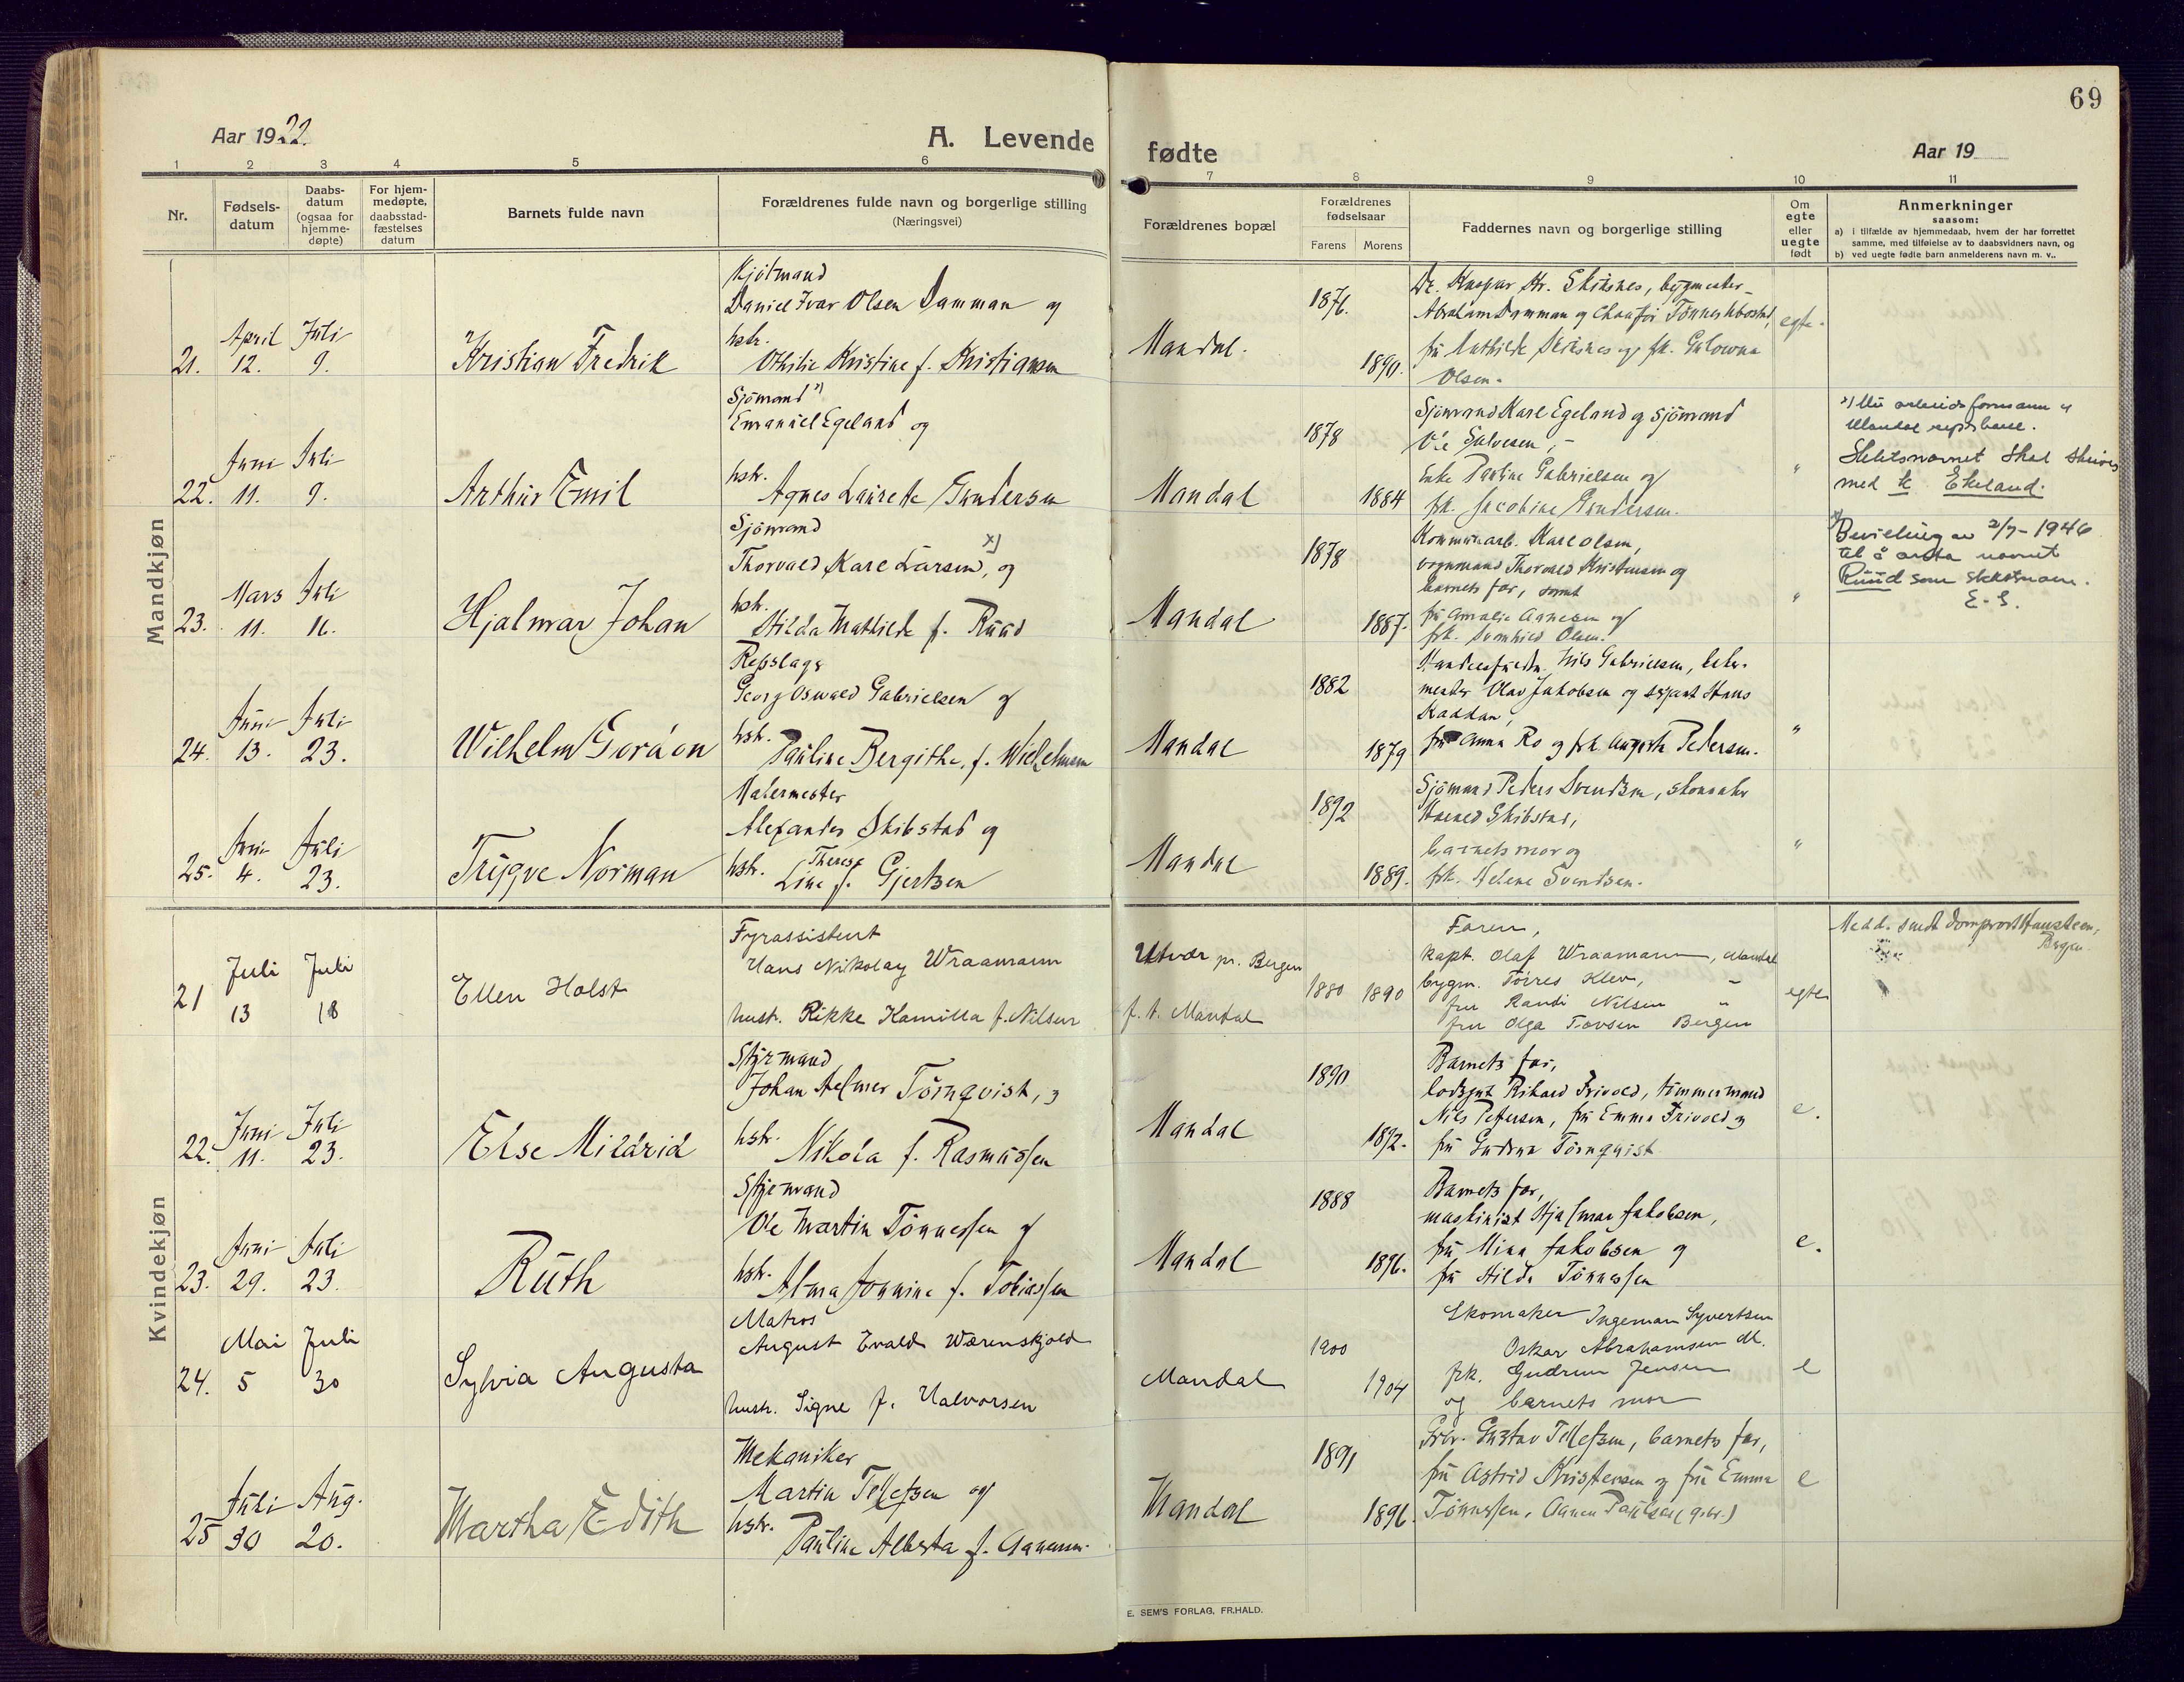 69
Aar 1922.
A. Levende
fødte
Aar 19
1 2 3 4 5 6 7 8 9 10 11
Nr.
Fødsels-
datum
Daabs-
datum
(ogsaa for
hjemme-
døpte)
For hjem-
medøpte,
daabsstad-
fæstelses
datum
Barnets fulde navn
Forældrenes fulde navn og borgerlige stilling
(Næringsvei)
Forældrenes bopæl
Forældrenes
fødselsaar
Farens Morens
Faddernes navn og borgerlige stilling
Om
egte
eller
uegte
født
Anmerkninger
saasom:
a) i tilfælde av hjemmedaab, hvem der har forrettet
samme, med tilføielse av to daabsvidners navn, og
b) ved uegte fødte barn anmelderens navn m. v..
Mandkjøn
21. April 12. Juli 9.
Kristian Fredrik
Kjøtmand
Daniel Ivar Olsen Damman og
hstr.
Othilie Kristine f. Kristiansen
Mandal.
1876.
1890.
Dr. Kaspar Kr. Skisnes, bygmester
Abraham Damman og Chauffør
Olsen.
egte.
22. Juni 11. Juli 9.
Arthur Emil
Sjömand
Emanuel Egeland og
hstr.
Agnes Laurette Gundersen
Mandal
1878
1884
Sjömand Karl Egeland og Sjömand
Ole Salvesen,
Enke Pauline Gabrielsen og
frk. Jacobine Gundersen.
"
Mandal
Slektsnavnet skal skrives
med k Ekeland.
23. Mars 11. Juli 16.
Hjalmar Johan
Sjömand
Thorvald Karl Larsen, x) og
hstr.
Hilda Mathilde f. Ruud
Mandal
1878
1887.
Kommunearb. Karl Olsen,
vognmand Thorvald Kristensen og
barnets far, samt
fru Amalie Aanesen og
frk. Olsen.
"
x) Bevilling av 2/7-1946
til å anta navnet
Ruud som slektsnavn.
E. S.
24. Juni 13. Juli 23.
Wilhelm Gordon
Repslager
Georg Oswald Gabrielsen og
hstr.
Pauline Bergithe, f. Wilhelmsen
Mandal
1882
1879
Nils Gabrielsen,
mester Olav Jakobsen og serjant Hans
Kaddan,
fru Anna Ro og frk. Auguste Pedersen.
"
25. Juni 4. Juli 23.
Trygve Norman
Malermester
Alexander Skibstad og
hstr. Therese
Line f. Gjertsen
Mandal
1892
1889.
Sjömand Peder Svendsen, skomaker
Skibstad,
barnets mor og
frk. Helene Svendsen.
"
Kvindekjøn
21 Juli 13 Juli 18
Ellen Holst
Fyrassistent
Hans Nikolay Wraamann
hustr. Rikke Kamilla f. Nilsen
Utvær pr. Bergen
f. t. Mandal
1880 1890
Faren,
Kapt. Olaf Wraamann, Mandal
bygm. Torres Klev, "
fru Randi Nilsen "
fru Olga Torsen Bergen
egte
Medd. sendt domprovst Hausteen,
Bergen
22. Juni 11. Juli 23.
Else Mildrid
Styrmand
Johan Helmer Törnqvist, og
hstr.
Nikola f. Rasmussen
Mandal
1890
1892.
Barnets far,
Rikard Frivold, tömmermand
Nils Pettersen, fru Emma Frivold og
fru Gudrun Törnqvist
e.
23. Juni 29. Juli 23.
Ruth
Styrmand
Ole Martin Tönnessen og
hstr.
Alma Jonnine f. Tobiassen
Mandal
1888
1896.
Barnets far,
maskinist Hjalmar Jakobsen,
fru Mina Jakobsen og
fru Hilda Tönnessen
e.
24. Mai 5 Juli 30
Sylvia Augusta
Matros
August Evald Wærenskjold
hustr. Signe f. Halvorsen
Mandal
1900
1904
Skomaker Ingeman Syvertsen
Oskar Abrahamsen
frk. Gudrun Jensen
og barnets mor
e
25 Juli 30 Aug. 20.
Martha Edith
Mekaniker
Martin Tellefsen og
hstr.
Pauline Alberta f. Aanensen
Mandal
1891
1896.
Gustav Tellefsen, barnets far,
fru Astrid Kristensen og fru Emma
Tönnessen,
e
E. SEM'S FORLAG, FR.HALD.